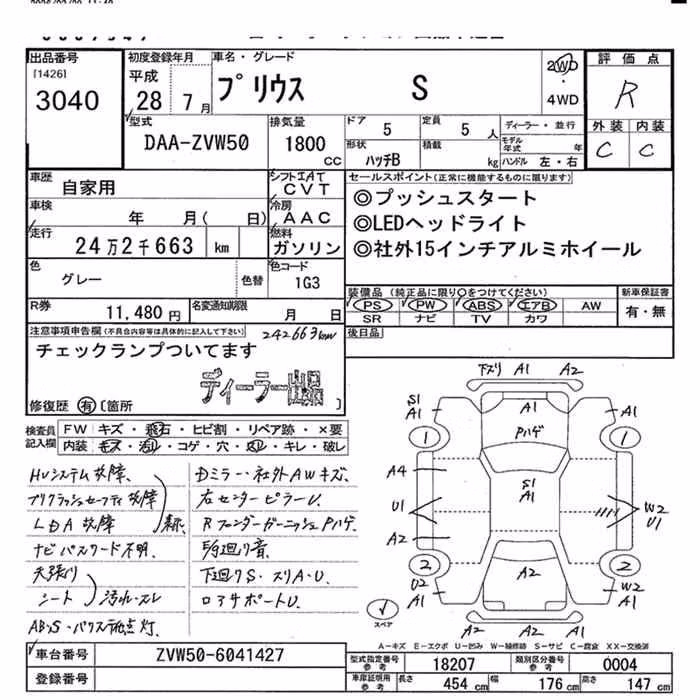 出品番号
[1426]
3040
初度登録年月
平成
28年 7月
車名・グレード
プリウス S
2WD
・
4WD
評価点
R
外装 内装
C C
型式
DAA-ZVW50
排気量
1800
CC
ドア 5
定員 5 人
形状
ハッチB
積載 kg
ディーラー・並行
モデル年式 年
ハンドル 左・右
車歴
自家用
シフト IAT
CVT
車検
年 月( 日)
冷房
AAC
走行
24万2千663 km
燃料
ガソリン
色
グレー
色替
色コード
1G3
R券
11,480 円
名変通知期限
月 日
セールスポイント(正常に機能するものに限ります)
◎プッシュスタート
◎LEDヘッドライト
◎社外15インチアルミホイール
装備品 (純正品に限り〇をつけてください)
PS PW ABS エアB AW
SR ナビ TV カワ
新車保証書
有・無
後日品
注意事項申告欄(不具合内容等は具体的に記入して下さい)
242663km
チェックランプついてます
ディーラー
修復歴 有 [箇所 ]
検査員記入欄
FW キズ・飛石・ヒビ割・リペア跡・×要
内装 キズ・汚れ・コゲ・穴・・キレ・破レ
HVシステム故障、
プリクラッシュセーフティ故障
LDA故障 表示、
ナビパスワード不明、
天張り
シート 汚れ・スレ
ABS・パワステ警告灯、
Dミラー・社外AWキズ、
左センターピラーU、
RフェンダーガーニッシュPハゲ、
下廻りS・スリA・U、
コアサポートU、
下スリ A1 A2
S1
A1
A1
Pハゲ
1 1
A4
S1
A1
U1
W2
U1
A2
2 2
U2
A1
A2
W2
A1
A2 A2
スペア
A-キズ E-エクボ U-凹み W-補修跡 S-サビ C-腐食 XX-交換済
車台番号
ZVW50-6041427
登録番号
型式指定番号
参考
18207
類別区分番号
参考
0004
車庫証明用
参考
長さ 454 cm
幅 176 cm
高さ 147 cm